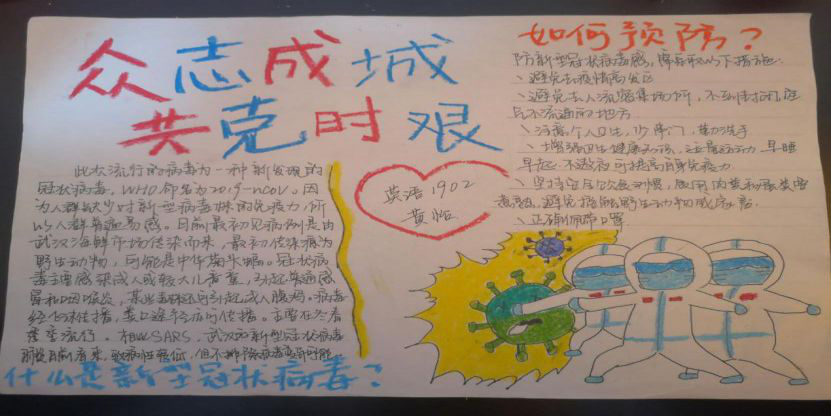 众志成城
共克时艰
此次流行的病毒为一种新发现的
冠状病毒，WHO命名为2019-nCoV。因
为人群缺少对新型病毒株的免疫力，所
以人群普遍易感。目前最初见病例是由
武汉海鲜市场传染而来，最初传染源为
野生动物，可能是中华菊头蝠。冠状病
毒主要感染成人或较大儿童，引起普通感
冒和咽喉炎，某些毒株还可引起成人腹泻。病毒
经飞沫传播，粪口途径亦可传播。主要在冬春
季流行。相比SARS，武汉的新型冠状病毒
什么是新型冠状病毒？
英语1902
黄怡
如何预防？
防新型冠状病毒感
、避免去疫情高发区
、避免去人流密集场所，不到封闭、空
气不流通的地方
、注意个人卫生，少出门，勤洗手
早睡
早起 不熬夜可提高自身免疫力
、正确佩带口罩